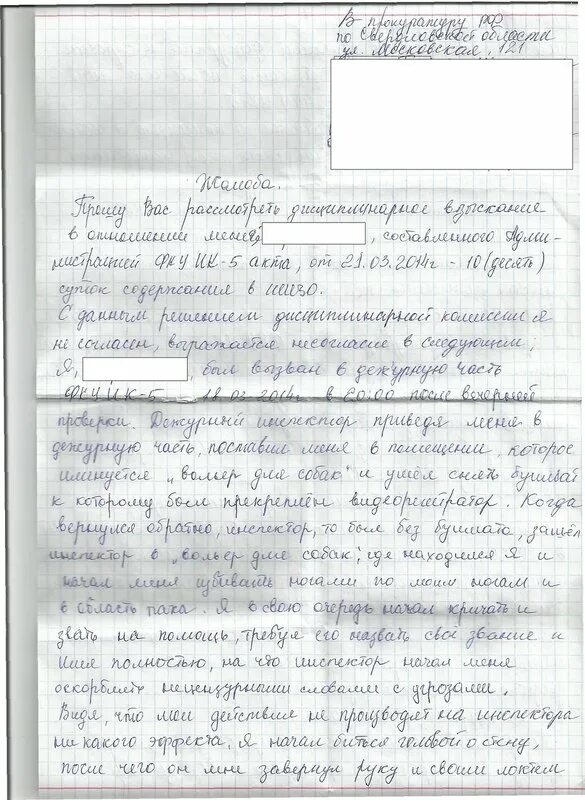 В прокуратуру РФ
по Свердловской области
ул. Московская, 121
Жалоба.
Прошу Вас рассмотреть дисциплинарное взыскание
в отношении меня, , составленного Адми-
нистрацией ФКУ ИК-5 акта, от 21.03.2014г - 10 (десять)
суток содержания в ШИЗО.
С данным решением дисциплинарной комиссии я
не согласен, выражается несогласие в следующем;
Я, , был вызван в дежурную часть
ФКУ ИК-5 18.03.2014г. в 20:00 после вечерней
проверки. Дежурный инспектор приведя меня в
дежурную часть, поставил меня в помещении, которое
иминуется „вольер для собак" и ушёл снять бушлат
к которому был прекреплён видеорегистратор. Когда
вернулся обратно, инспектор, то был без бушлата, зашёл
инспектор в „вольер для собак", где находился я и
начал меня избивать ногами по моим ногам и
в область паха. Я в свою очередь начал кричать и
звать на помощь, требуя его назвать своё звание и
имя полностью, на что инспектор начал меня
оскорблять нецензурными словами с угрозами.
Видя, что мои действия не производят на инспектора
ни какого эффекта, я начал биться головой о стену,
после чего он мне завернул руку и своим локтем